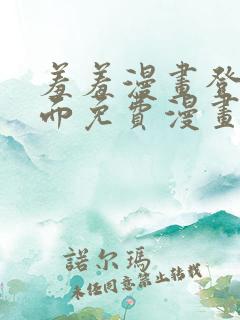 羞羞漫畫登
而免費漫畫
諾尔瑪
未任同意禁止转载